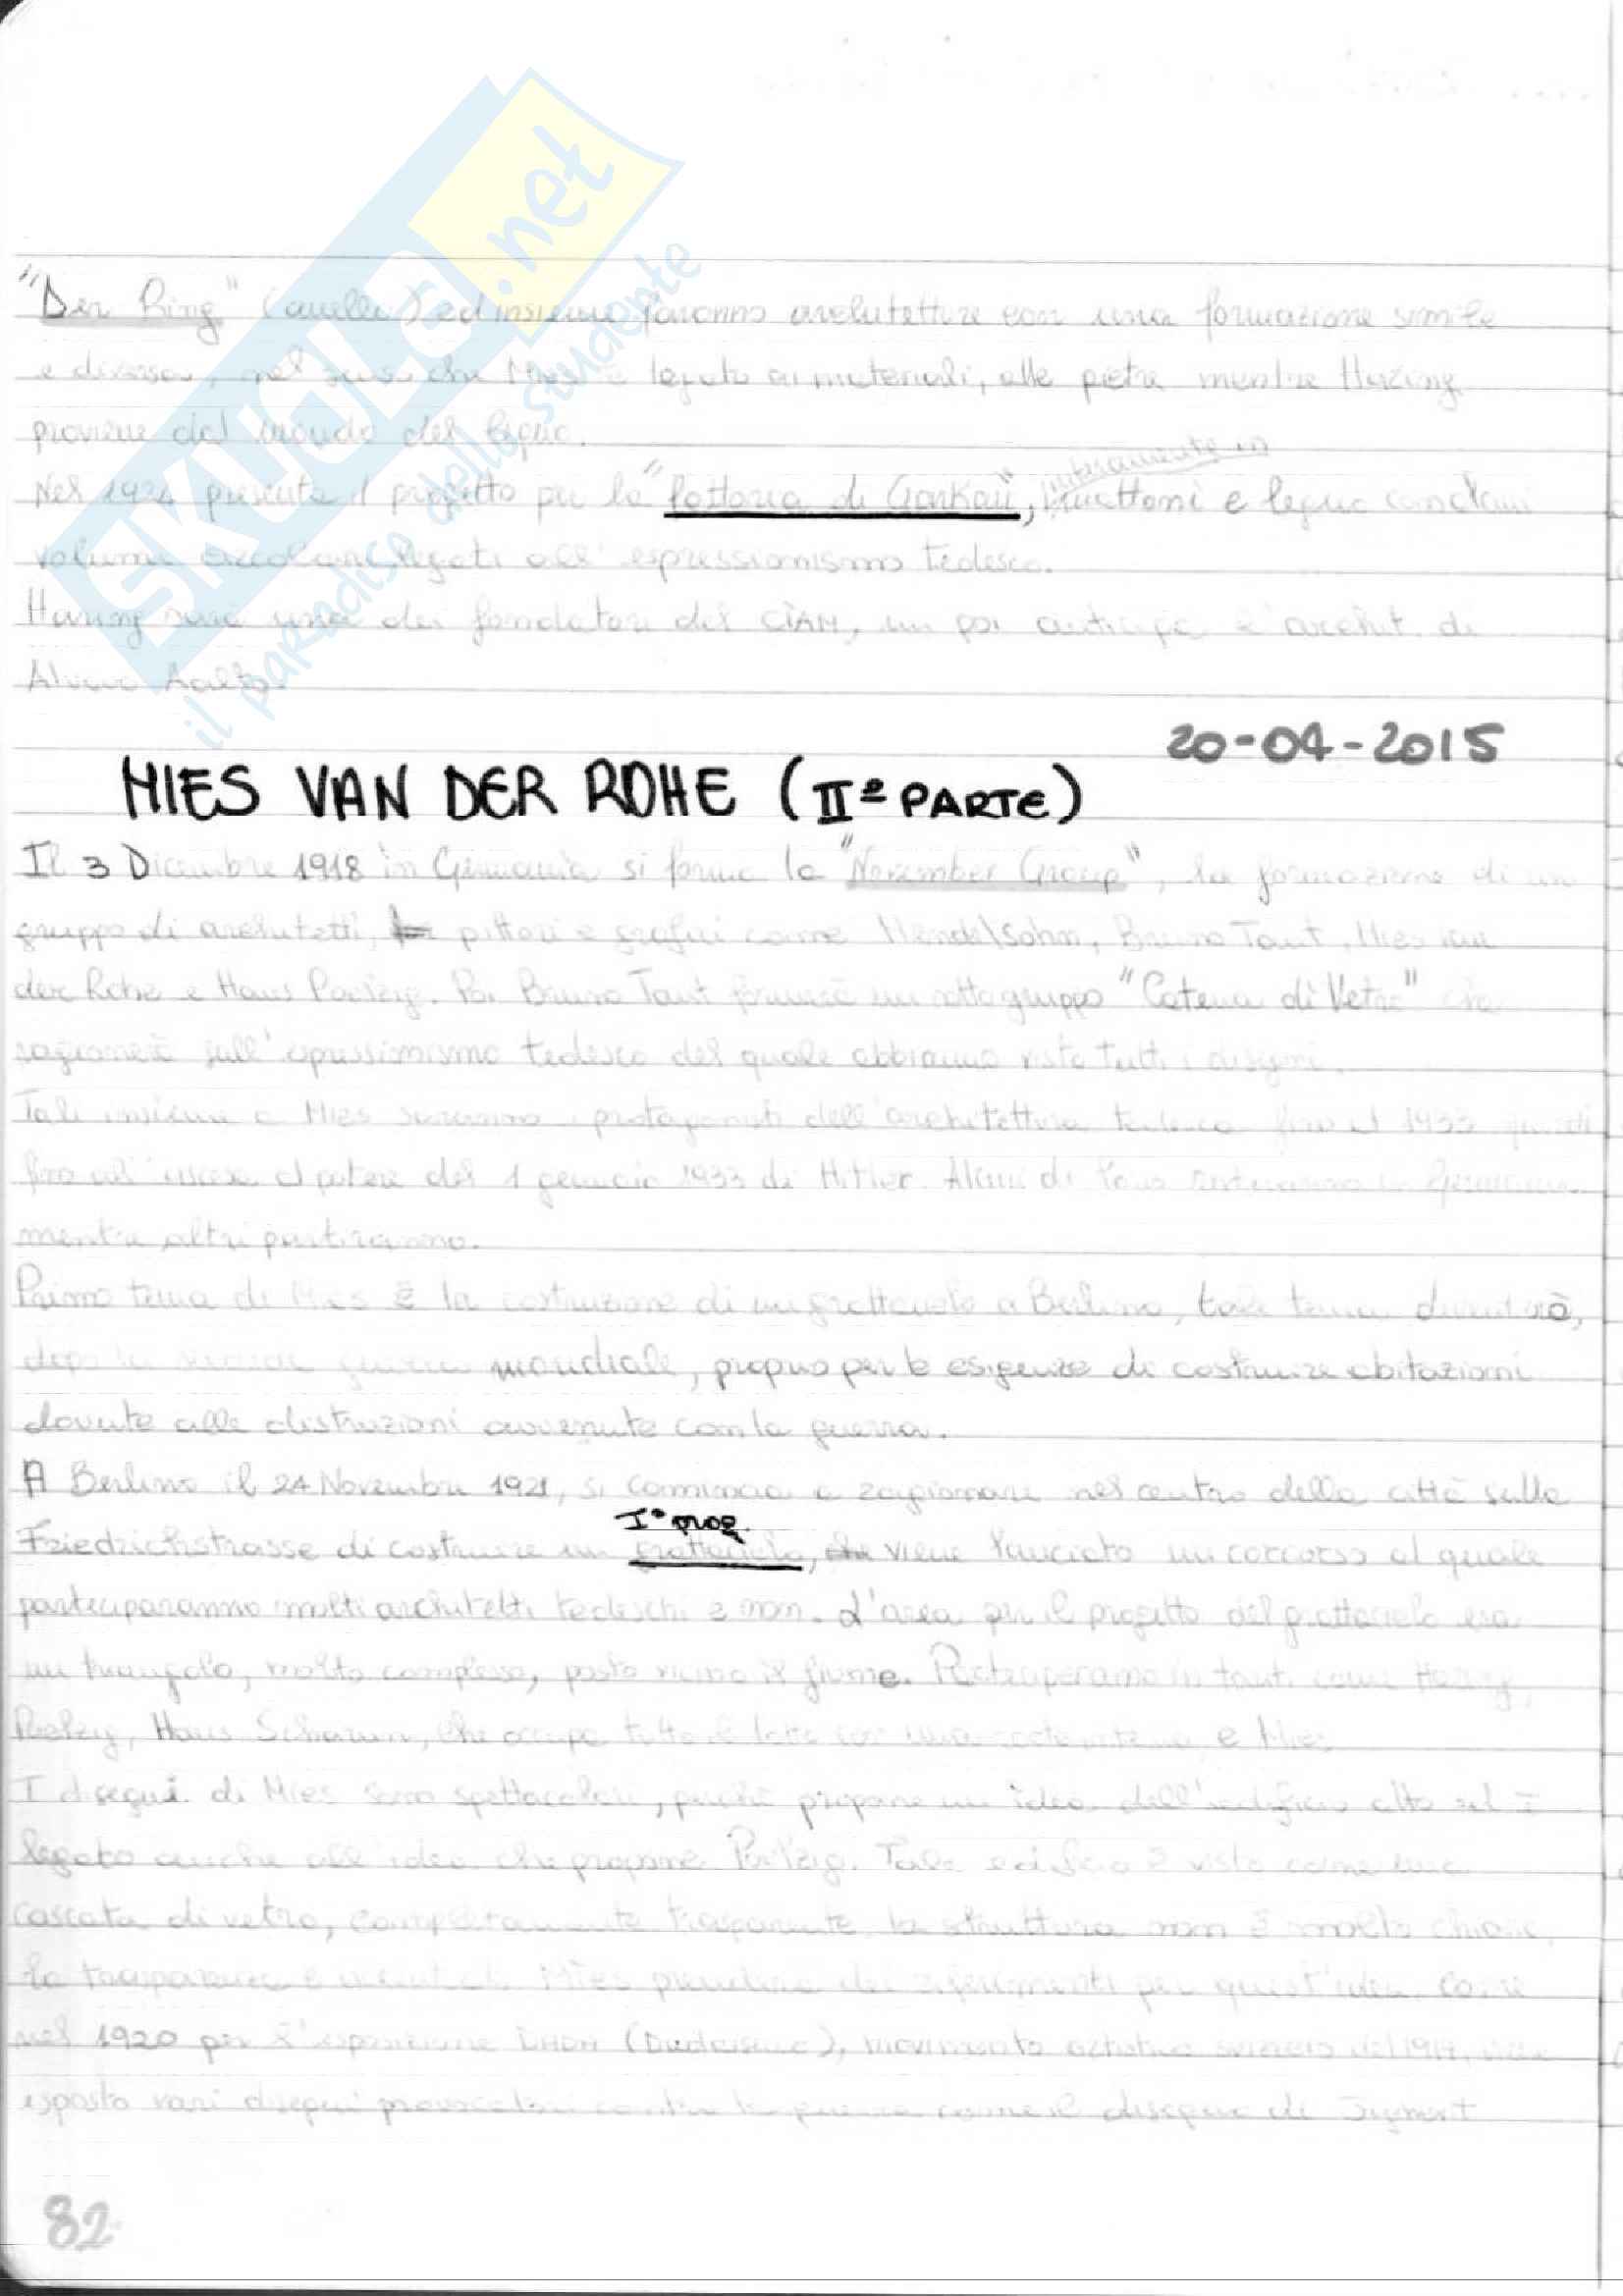 "Der Ring" (anello) ed insieme faranno architetture con una formazione simile
e diversa, nel senso che Mies è legato ai materiali, alle pietre mentre Haring
proviene dal mondo del legno.
interamente in
Nel 1924 presenta il progetto per la "fattoria di Garkau", mattoni e legno con
volumi legati all'espressionismo tedesco.
Haring sarà uno dei fondatori del CIAM, un po' anticipa l'archit. di
Alvar Aalto.
20-04-2015
MIES VAN DER ROHE (IIª PARTE)
Il 3 Dicembre 1918 in Germania si forma la "November Group", la formazione di un
gruppo di architetti, pittori e grafici come Mendelsohn, Bruno Taut, Mies van
der Rohe e Hans Poelzig. Poi Bruno Taut formerà un sottogruppo "Catena di Vetro" che
ragionerà sull'espressionismo tedesco del quale abbiamo visto tutti i disegni.
Tali insieme a Mies saranno i protagonisti dell'architettura tedesca fino al 1933 quindi
fino all'ascesa al potere del 1 gennaio 1933 di Hitler. Alcuni di loro resteranno in Germania
mentre altri partiranno.
Primo tema di Mies è la costruzione di un grattacielo a Berlino, tale tema diventerà,
dopo la guerra mondiale, proprio per le esigenze di costruire abitazioni
dovute alle distruzioni avvenute con la guerra.
A Berlino il 24 Novembre 1921, si comincia a ragionare nel centro della città sulla
I° prog.
Friedrichstrasse di costruire un grattacielo, viene lanciato un concorso al quale
parteciparanno molti architetti tedeschi e non. L'area per il progetto del grattacielo era
un triangolo, molto complesso, posto vicino il fiume. Parteciperanno in tanti come Haring,
Poelzig, Hans Scharoun, che occupa tutto il lotto con una e Mies
I disegni di Mies sono spettacolari, perché propone un idea dell'edificio alto ed è
legato anche all'idea che propone Poelzig. Tale edificio è visto come una
cascata di vetro, completamente trasparente, la struttura non è molto chiara,
la trasparenza è Mies prendeva dei riferimenti per quest'idea. Come
nel 1920 per l'esposizione DADA (Dadaismo), movimento artistico svizzero del viene
esposto vari disegni provocatori contro la guerra come il disegno di
82
SKUOLA.net
il paradiso dello studente